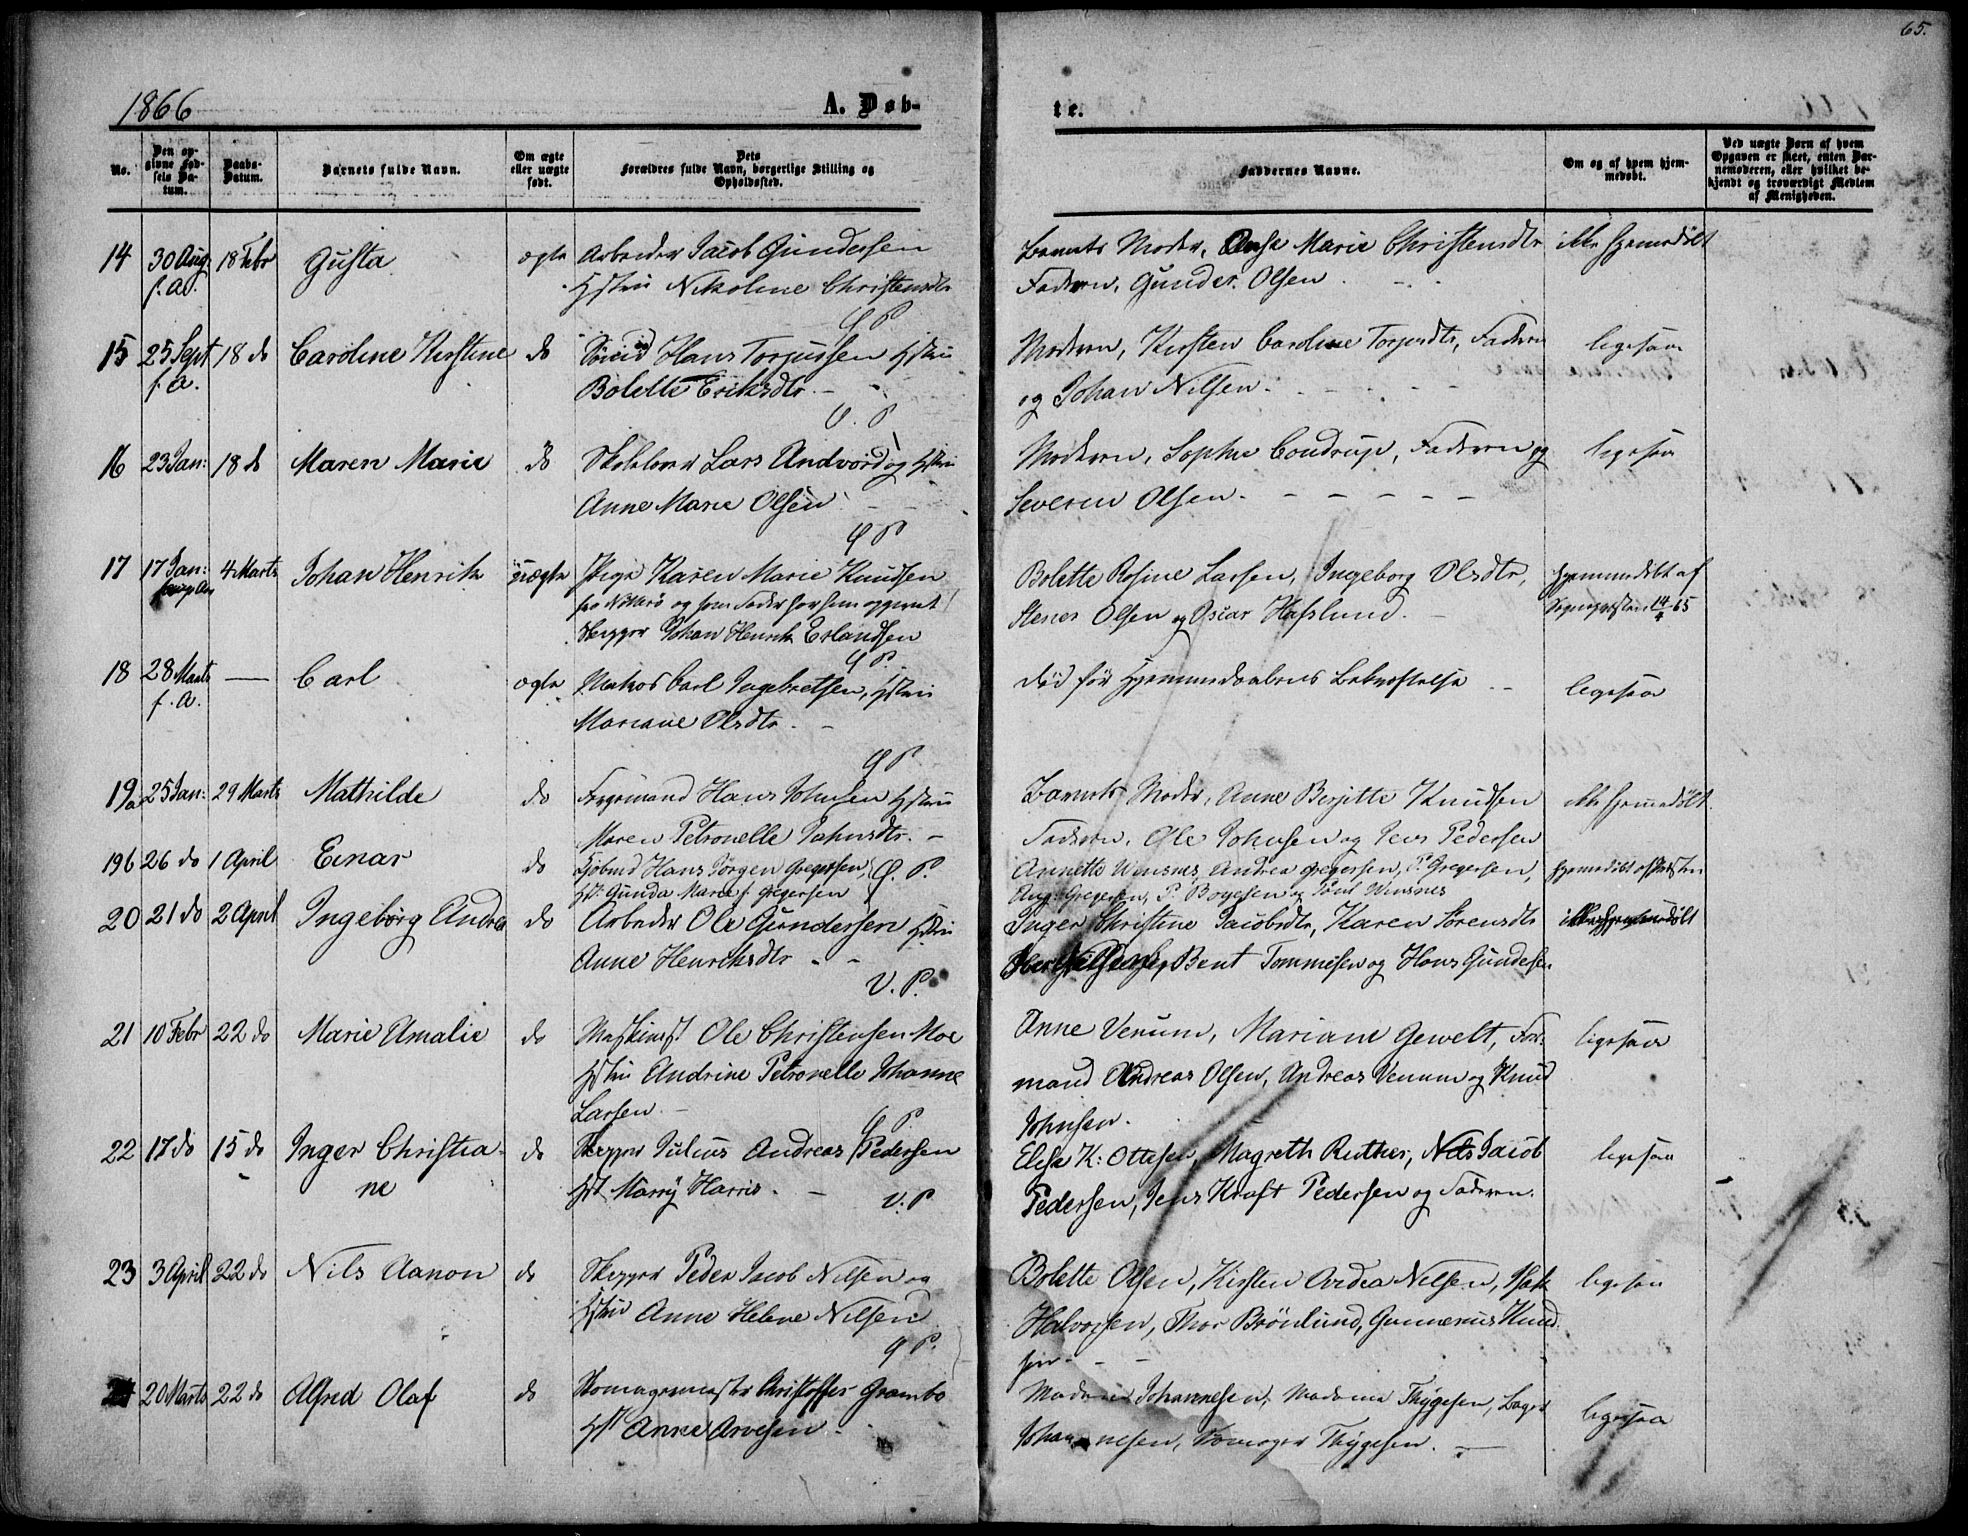 65.
1866
A. Døb-
te.
No.
Den op-
givne Fød-
sels Da-
tum.
Daabs-
Datum.
Barnets fulde Navn.
Om ægte
eller uægte
født.
Dets
Forældres fulde Navn, borgerlige Stilling og
Opholdssted.
Faddernes Navne.
Om og af hvem hjem-
medøbt.
Ved uægte Børn af hvem
Opgaven er skeet, enten Bar-
nemoderen, eller hvilket be-
kjendt og troværdigt Medlem
af Menigheden.
14 30 Aug 18 Febr Gusta ægte Arbeider Jacob Gundersen
f. A. Hstru Nikoline Christensdtr
Barnets Moder, Anne Marie Christensdtr ikke hjemmedøbt
Faderen, Gunder Olsen
15 25 Sept 18 do Caroline Kirstine do Hans Torjussen Hstru
f. A. Bolette Eriksdtr.
Moderen, Kirsten Caroline Torjusdtr, Faderen ligesaa
og Johan Nilsen.
16 23 Jan: 18 do Maren Marie do Skolelærer Lars Andvord og Hstru
Anne Marie Olsen
Moderen, Sophie Coudrup, Faderen og ligesaa
Severin Olsen.
17 17 Jan: 4 Marts Johan Henrik uægte Pige Karen Marie Knudsen
og som Fader har hun opgivet
Skipper Johan Henrik Erlandsen
Bolette Rosine Larsen, Ingeborg Olsdtr, hjemmedøbt af
Stener Olsen og Oscar Hafslund. Sognepræsten 14/4 65
18 28 Marts — Carl ægte Matros Carl Ingebretsen, Hstru
f. A. Mariane Olsdtr.
død før Hjemmedaabens Bekræftelse ligesaa
19a 25 Jan: 29 Marts Mathilde do Færgemand Hans Johnsen Hstru
Maren Petronelle Johnsdtr.
Barnets Moder, Anne Berjitte Knudsen ikke hjemmedøbt
Faderen, Ole Johnsen og Jens Pedersen
19b 26 do 1 April Einar do Kjøbmd Hans Jørgen Gregersen, Ø. P.
Hst. Gunda Marie f. Gregersen
Annette Wensnes, Andrea Gregersen, P. Gregersen, hjemmedøbt af Præsten
Aug. Gregersen, P. Boyesen og Paul Wensnes
20 21 do 2 April Ingeborg Andrea do Arbeider Ole Gundersen Hstru
Anne Henriksdtr
V. P.
Inger Christine Jacobsdtr, Karen Sørensdtr ikke hjemmedøbt
Bent Tommesen og Hans Gundersen
21 10 Febr 22 do Marie Amalie do Maskinist Ole Christensen Moe
Hstru Andrine Petronelle Johanne
Larsen
Anne Venum, Mariane Gewelt, For- ligesaa
mand Andreas Olsen, Andreas Venum og Knud
Johnsen.
22 17 do 15 do Inger Christia- do Skipper Julius Andreas Pedersen
ne Hst Marry Harris.
V. P.
Elise K: Ottesen, Magreth Ruther, Nils Jacob ligesaa
Pedersen, Jens Kraft Pedersen og Faderen.
23 3 April 22 do Nils Aanon do Skipper Peder Jacob Nilsen og
Hstru Anne Helene Nilsen
Bolette Olsen, Kirsten Andrea Nilsen, Isak ligesaa
Halvorsen, Thor Brönlund, Gunnerius Knud-
sen.
24 20 Marts 22 do Alfred Olaf do Skomagermester Christoffer Grambo
Hst Anne Arvesen
Madame Johannesen, Madame Thygesen, Bager ligesaa
Johannesen, Skomager Thygesen.